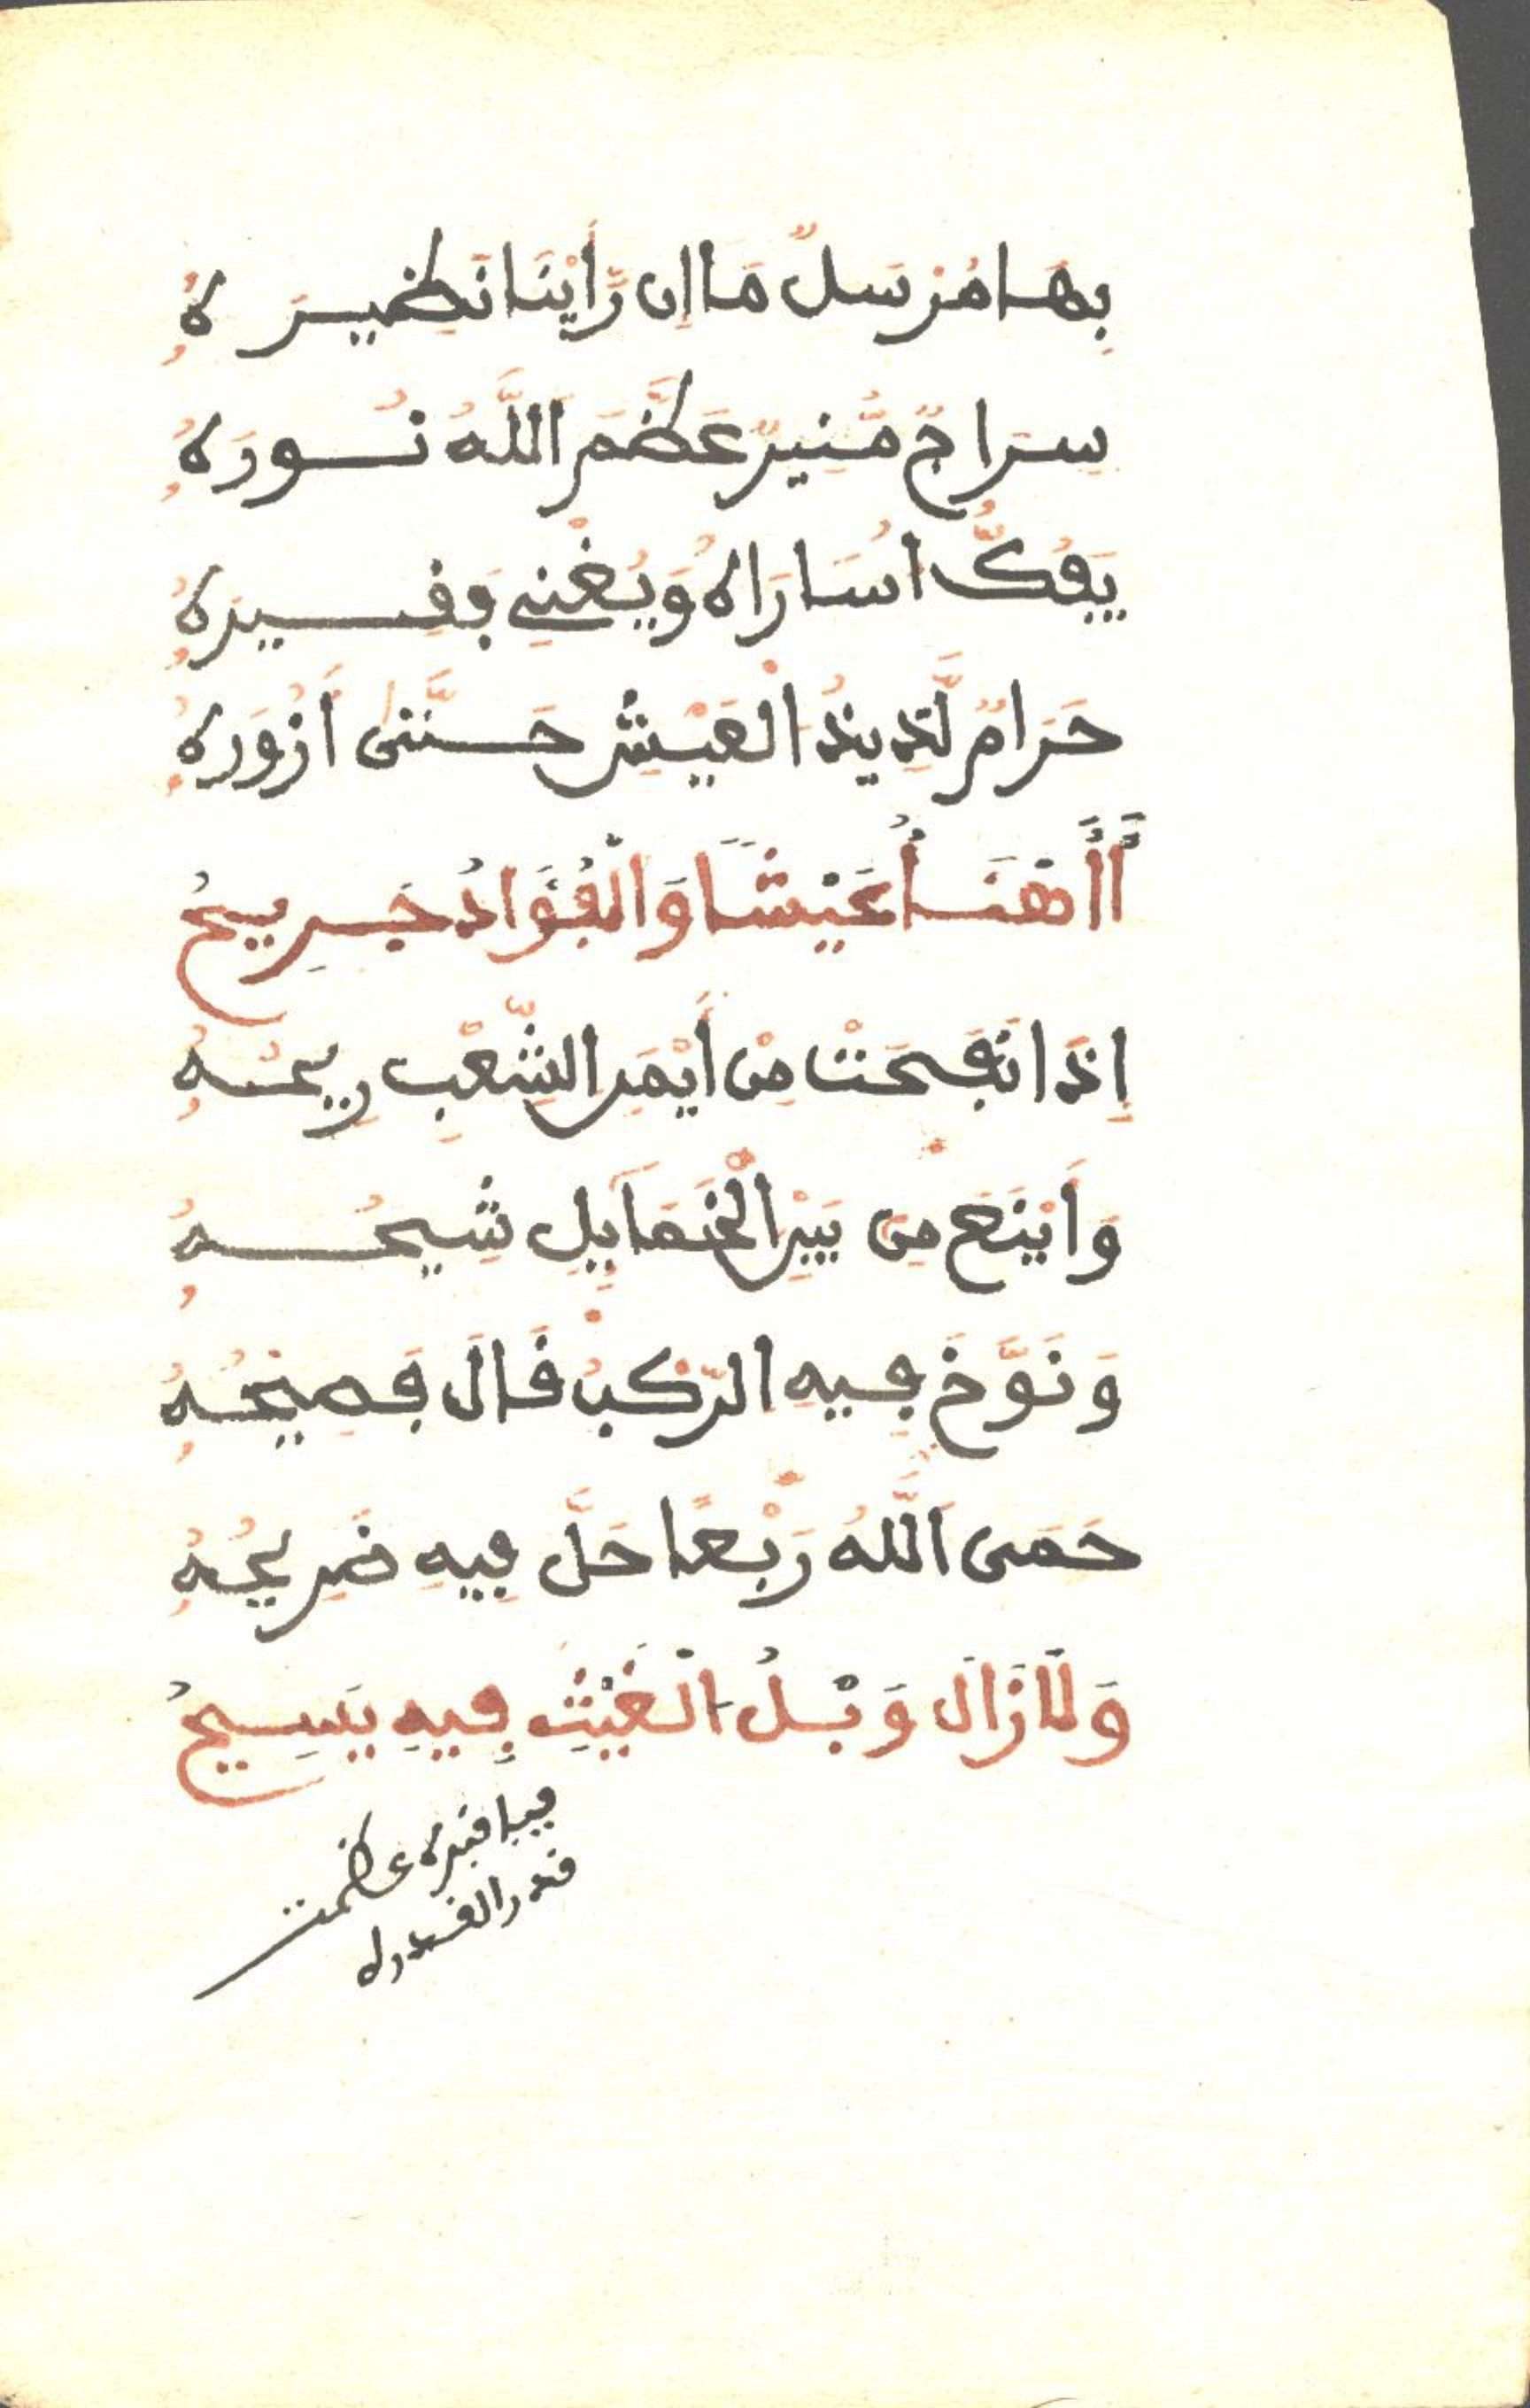 بِهَا مُرْسَلٌ مَا إِن رَّأَيْنَا نَظِيرَهُ
سِرَاجٌ مُّنِيرٌ عَظَّمَ اَللَّهُ نُورَهُ
يَفُكُّ أُسَارَاهُ وَيُغْنِي فَقِيرَهُ
حَرَامٌ لَّذِيذُ الْعَيْشِ حَتَّىٰ أَزُورَهُ
أَأَهْنَأُ عَيْشًا وَالْفُؤَادُ جَرِيحُ
إِذَا نَفَحَتْ مِنْ أَيْمَنِ الشِّعْبِ رِيحُهُ
وَأَيْنَعَ مِن بَيْنِ الْخَمَايِلِ شِيحُهُ
وَنَوَّخَ فِيهِ الرَّكْبُ قَالَ فَصِيحُهُ
حَمَى اَللَّهُ رَبْعًا حَلَّ فِيهِ ضَرِيحُهُ
وَلَا زَالَ وَبْلُ الْغَيْثِ فِيهِ يَسِيحُ
فيا قبره عظمت
قدر القدره